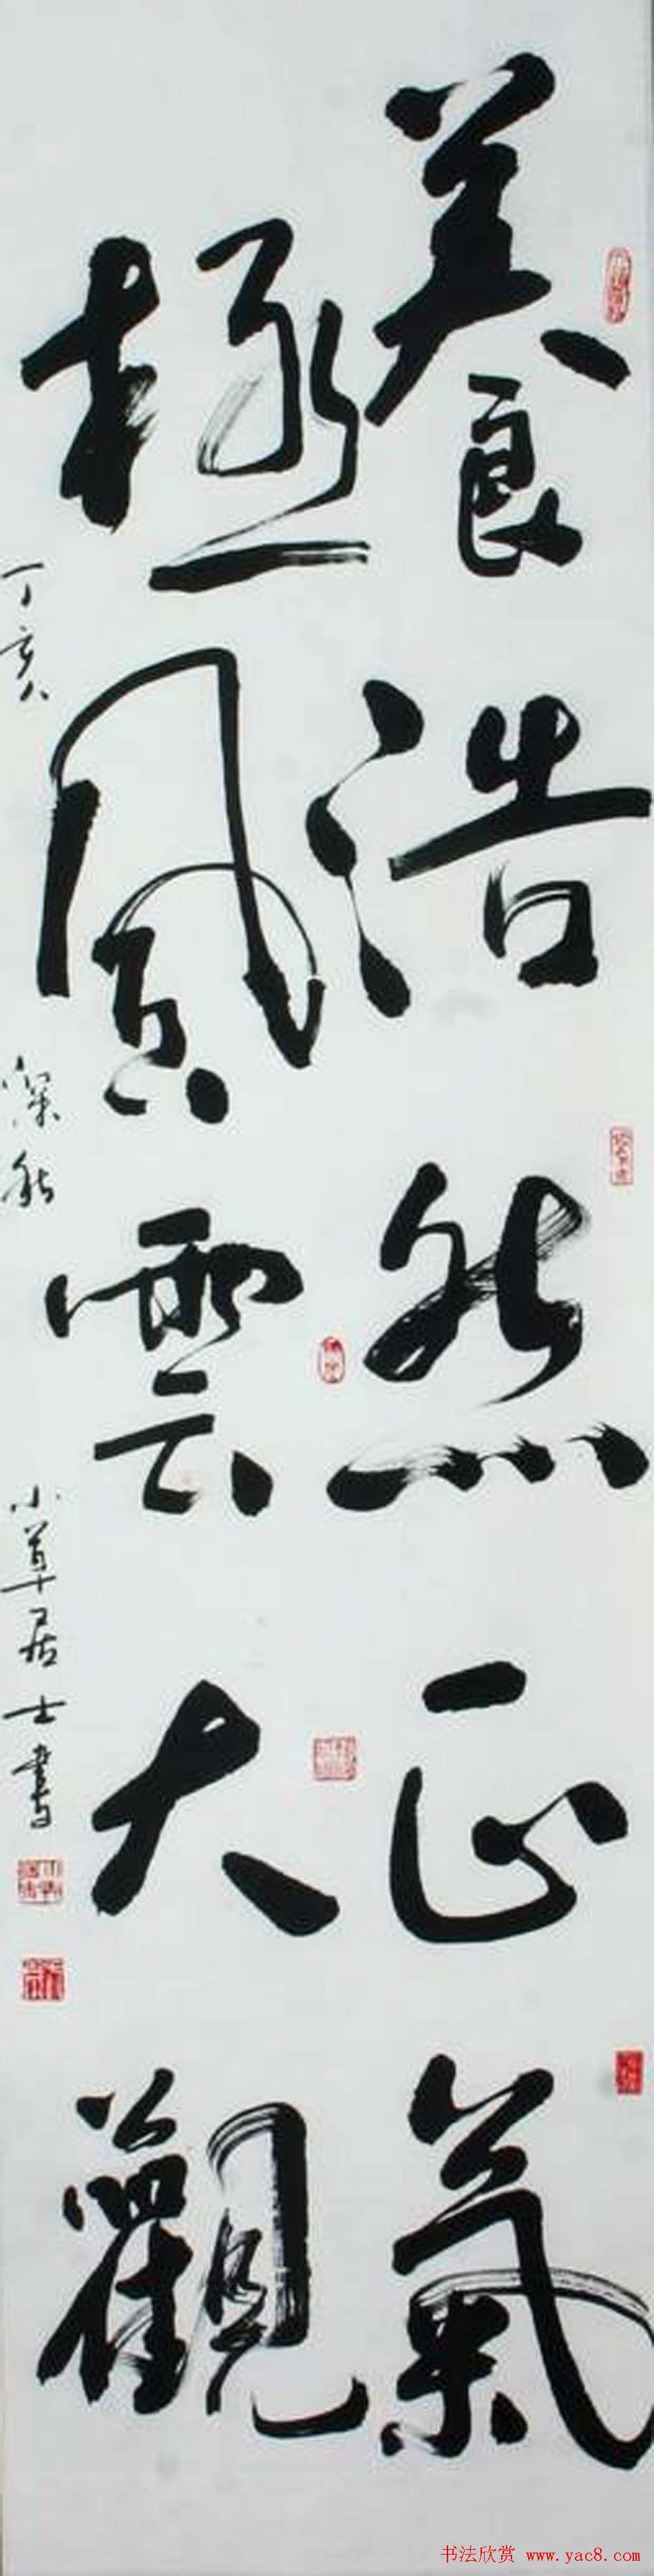 養浩然正氣
極風雲大觀
丁亥 深秋 小草居士書
书法欣赏 www.yac8.com